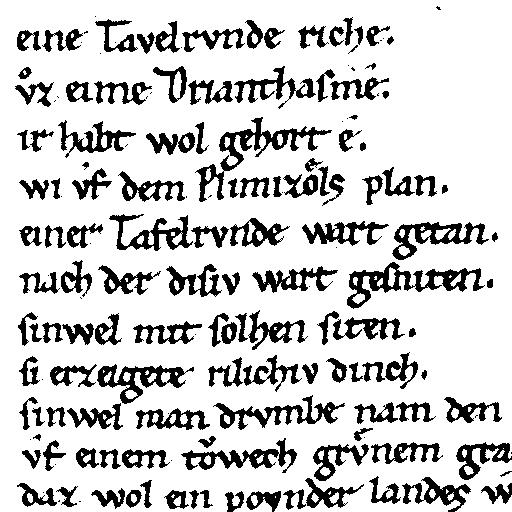 eine Tavelrvnde riche.
vͦz eime Drianthasme.
ir habt wol gehort e.
wi vf dem Plimizoͤls plan.
einer Tafelrvnde wart getan.
nach der disiv wart gesniten.
sinwel mit solhen siten.
si erzeigete rilichiv dinch.
sinwel man drvmbe nam den
vf einem toͮwech grvͤnem gra
daz wol ein poynder landes w